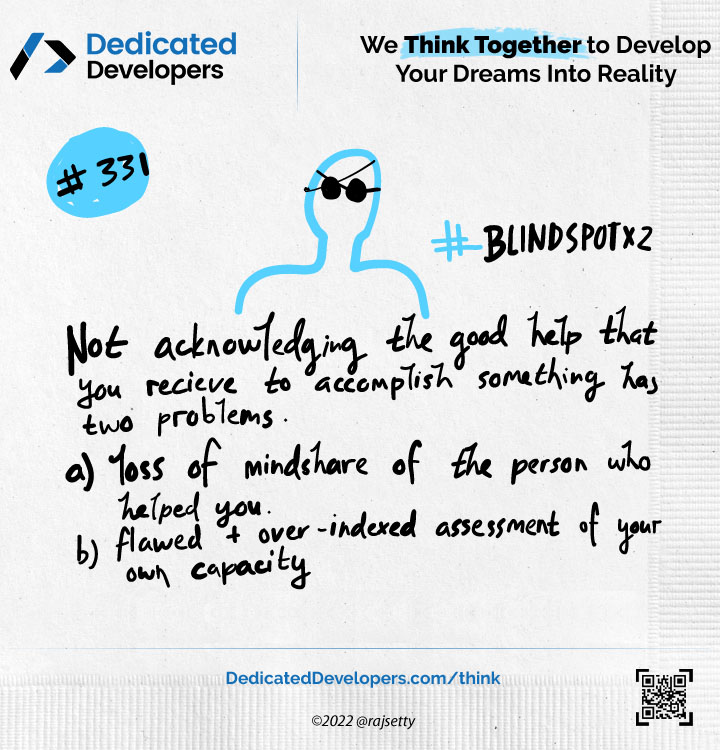 Dedicated
Developers
We Think Together to Develop
Your Dreams Into Reality
# 331
# BLINDSPOTX2
Not acknowledging the good help that
you recieve to accomplish something has
two problems.
a) loss of mindshare of the person who
helped you.
b) flawed + over-indexed assessment of your
own capacity
DedicatedDevelopers.com/think
©2022 @rajsetty